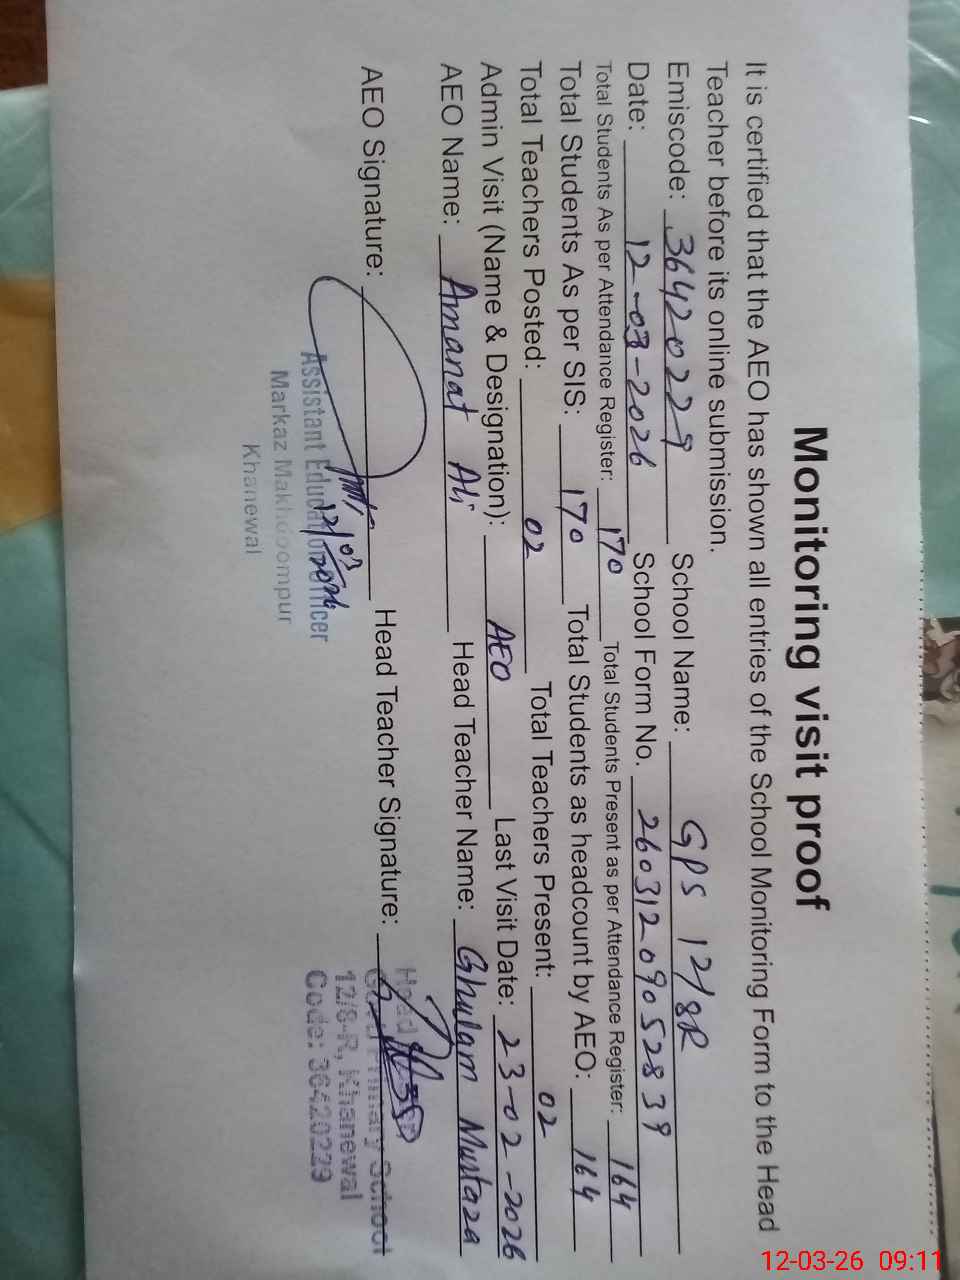 Monitoring visit proof
It is certified that the AEO has shown all entries of the School Monitoring Form to the Head
Teacher before its online submission.
Emiscode: 36420229 School Name: GPS 12/8R
Date: 12-03-2026 School Form No. 260312090528839
Total Students As per Attendance Register: 170 Total Students Present as per Attendance Register: 164
Total Students As per SIS: 170 Total Students as headcount by AEO: 164
Total Teachers Posted: 02 Total Teachers Present: 02
Admin Visit (Name & Designation): AEO Last Visit Date: 23-02-2026
AEO Name: Amanat Ali Head Teacher Name: Ghulam Murtaza
AEO Signature: Head Teacher Signature:
12/03/2026
Assistant Education Officer
Markaz Makhdoompur
Khanewal
Head
Govt Primary School
12/8-R, Khanewal
Code: 36420229
12-03-26 09:11